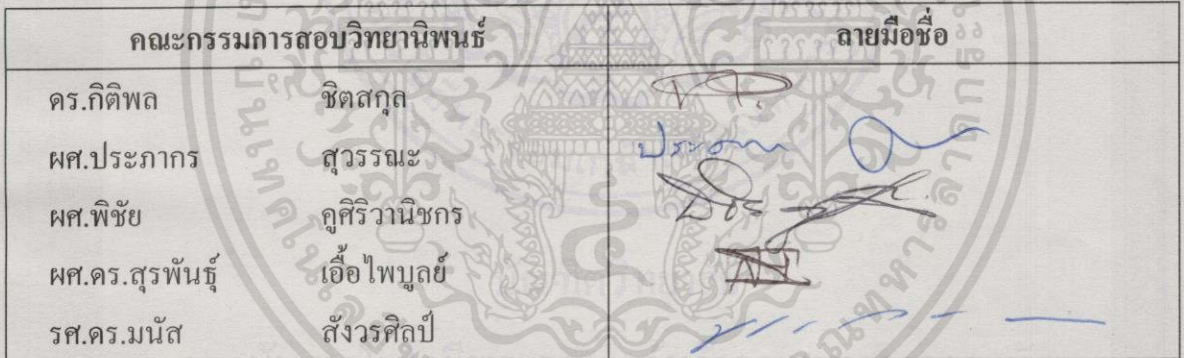 คณะกรรมการสอบวิทยานิพนธ์ ลายมือชื่อ
ดร.กิติพล ชิตสกุล
ผศ.ประภากร สุวรรณะ
ผศ.พิชัย ภูศิริวานิชกร
ผศ.ดร.สุรพันธุ์ เอื้อไพบูลย์
รศ.ดร.มนัส สังวรศิลป์